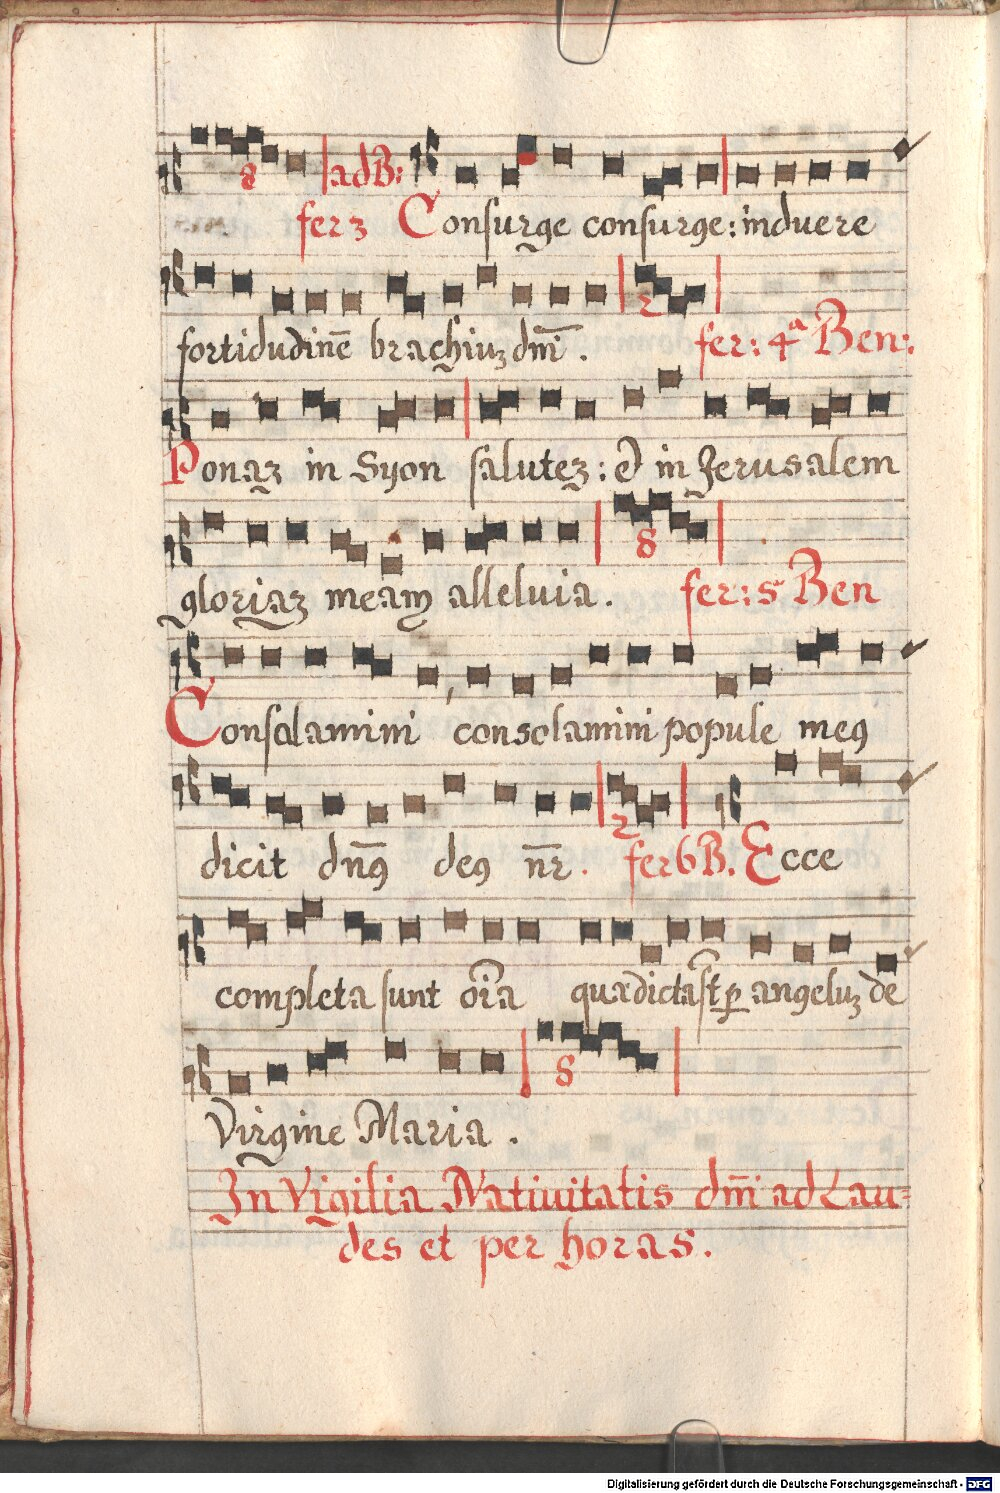 8 ad B:
fer 3 Consurge consurge: induere
fortidudinē brachiuz dm̄.
2 fer: 4ª Ben:
Ponaz in Syon salutez: et in Jerusalem
8
gloriaz meam alleluia. fer: 5 Ben
Consolamini, consolamini popule meus
2
dicit dn̄us deus nr̄. fer 6 B. Ecce
completa sunt oīa quæ dicta st̄ per angeluz de
8
Virgine Maria.
In Vigilia Nativitatis dm̄ ad Lau=
des et per horas.
Digitalisierung gefördert durch die Deutsche Forschungsgemeinschaft - DFG